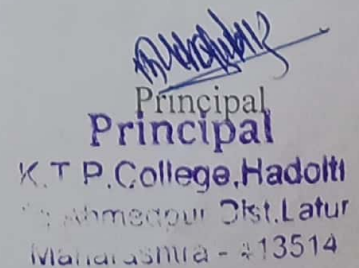 Principal
Principal
K.T.P.College,Hadolti
Ahmedpur Dist.Latur
Maharashtra - 413514